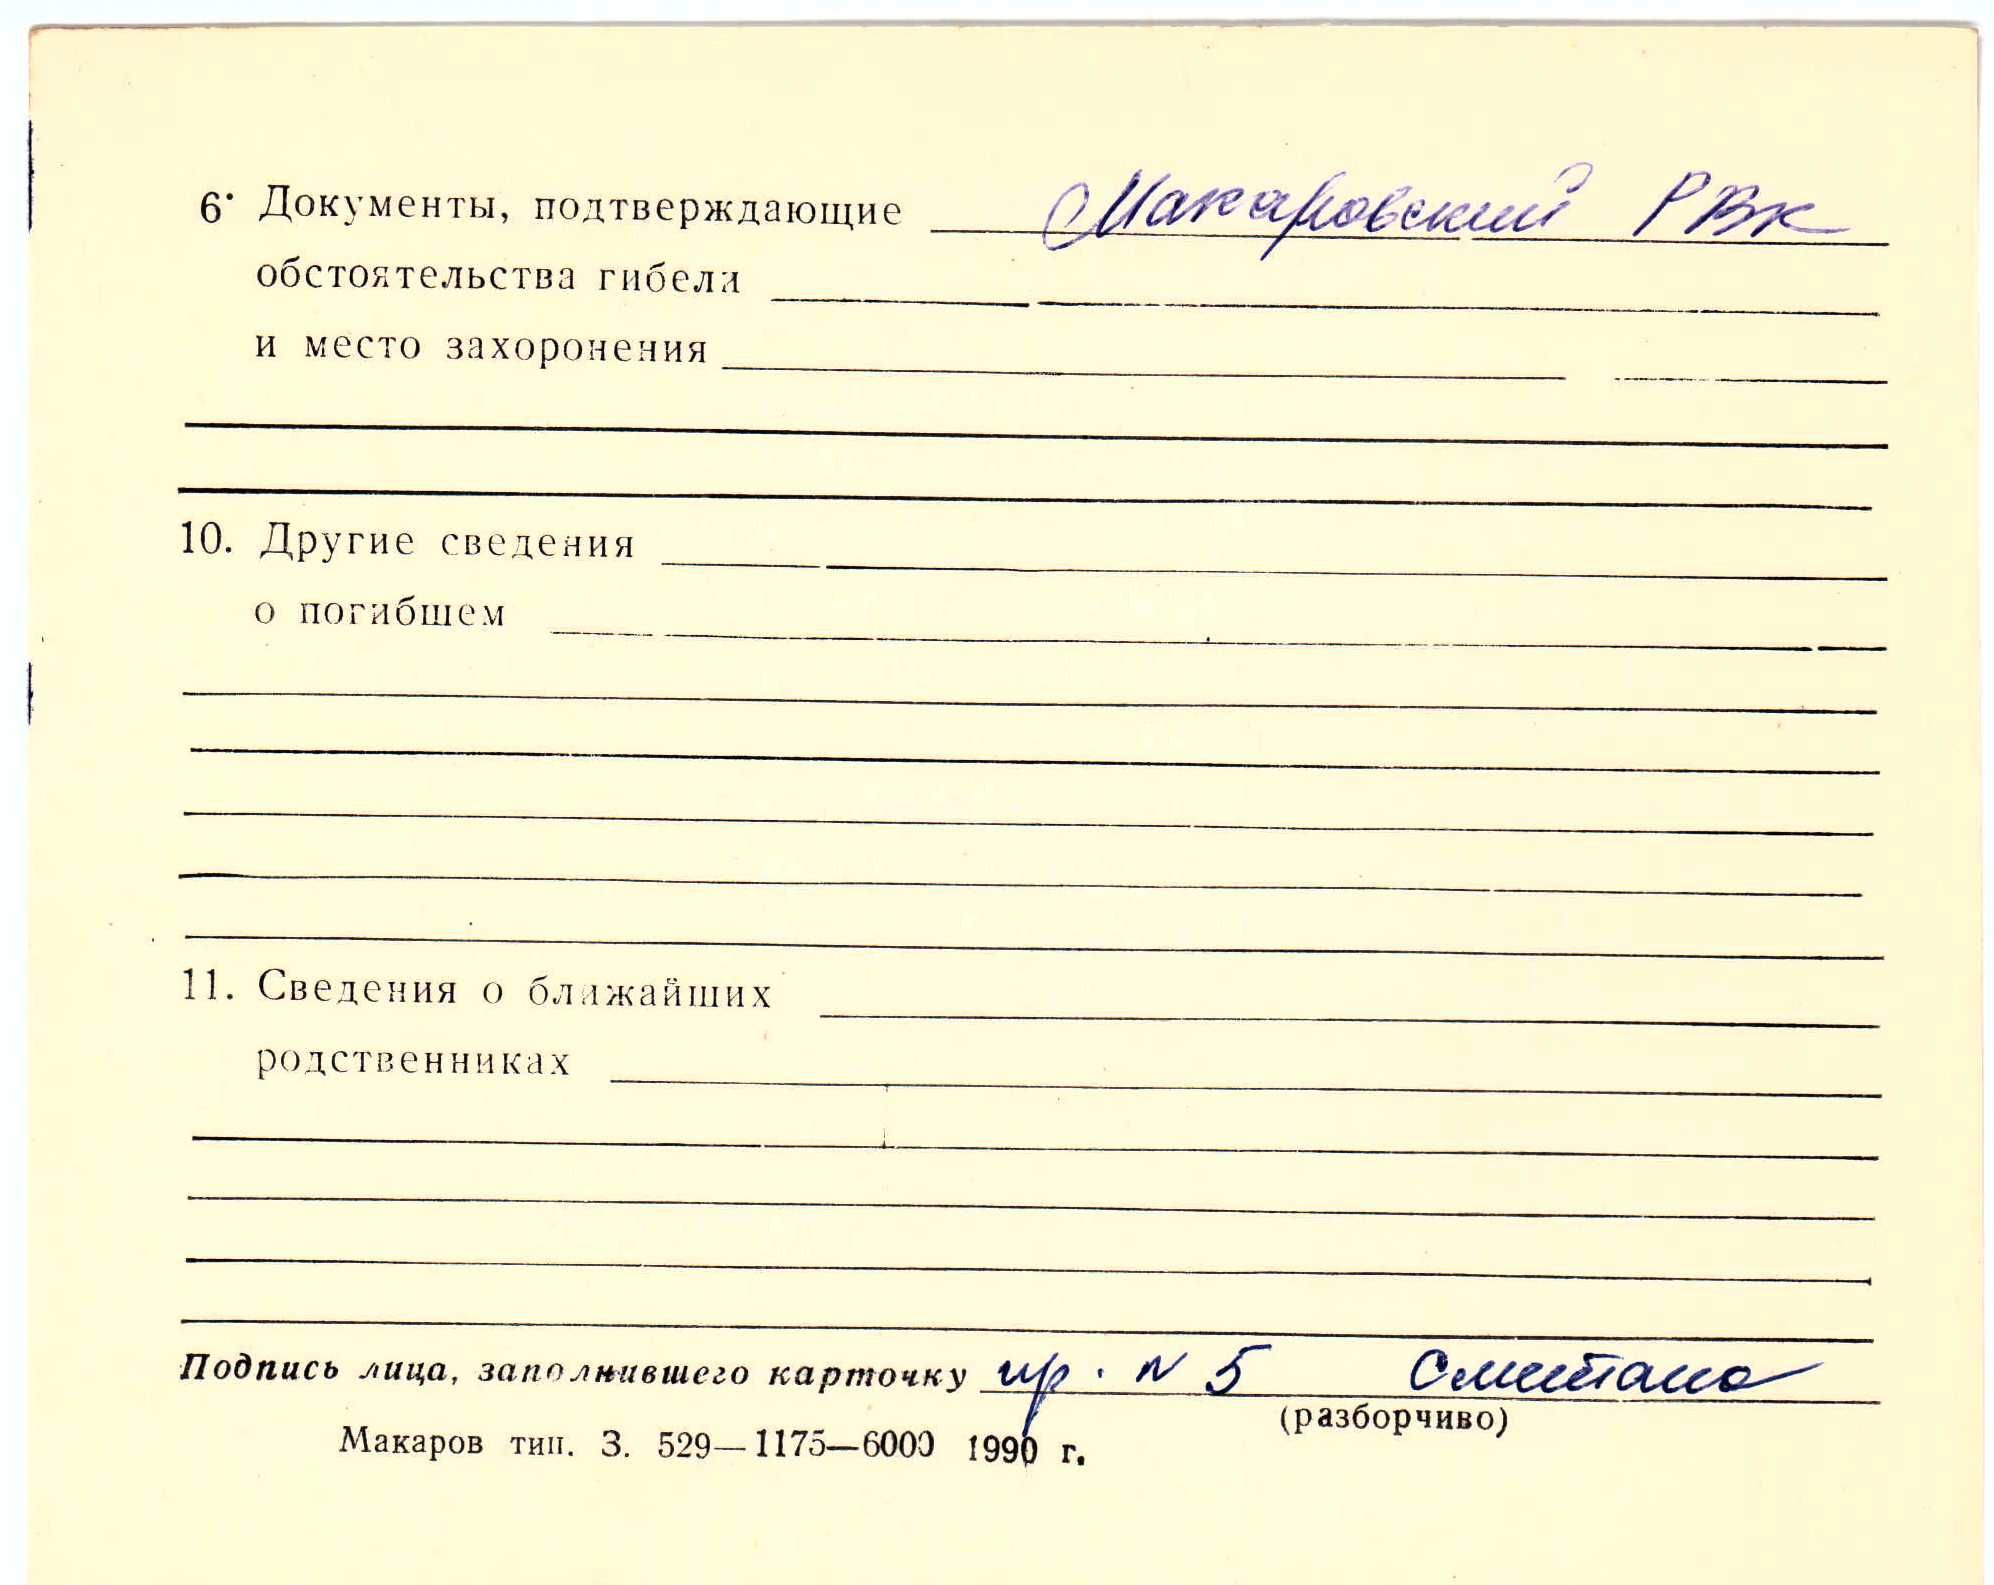 6. Документы, подтверждающие Макаровский РВК
обстоятельства гибели
и место захоронения
10. Другие сведения
о погибшем
11. Сведения о ближайших
родственниках
Подпись лица, заполнившего карточку пр. N 5 Сметана
(разборчиво)
Макаров тип. З. 529—1175—6000 1990 г.